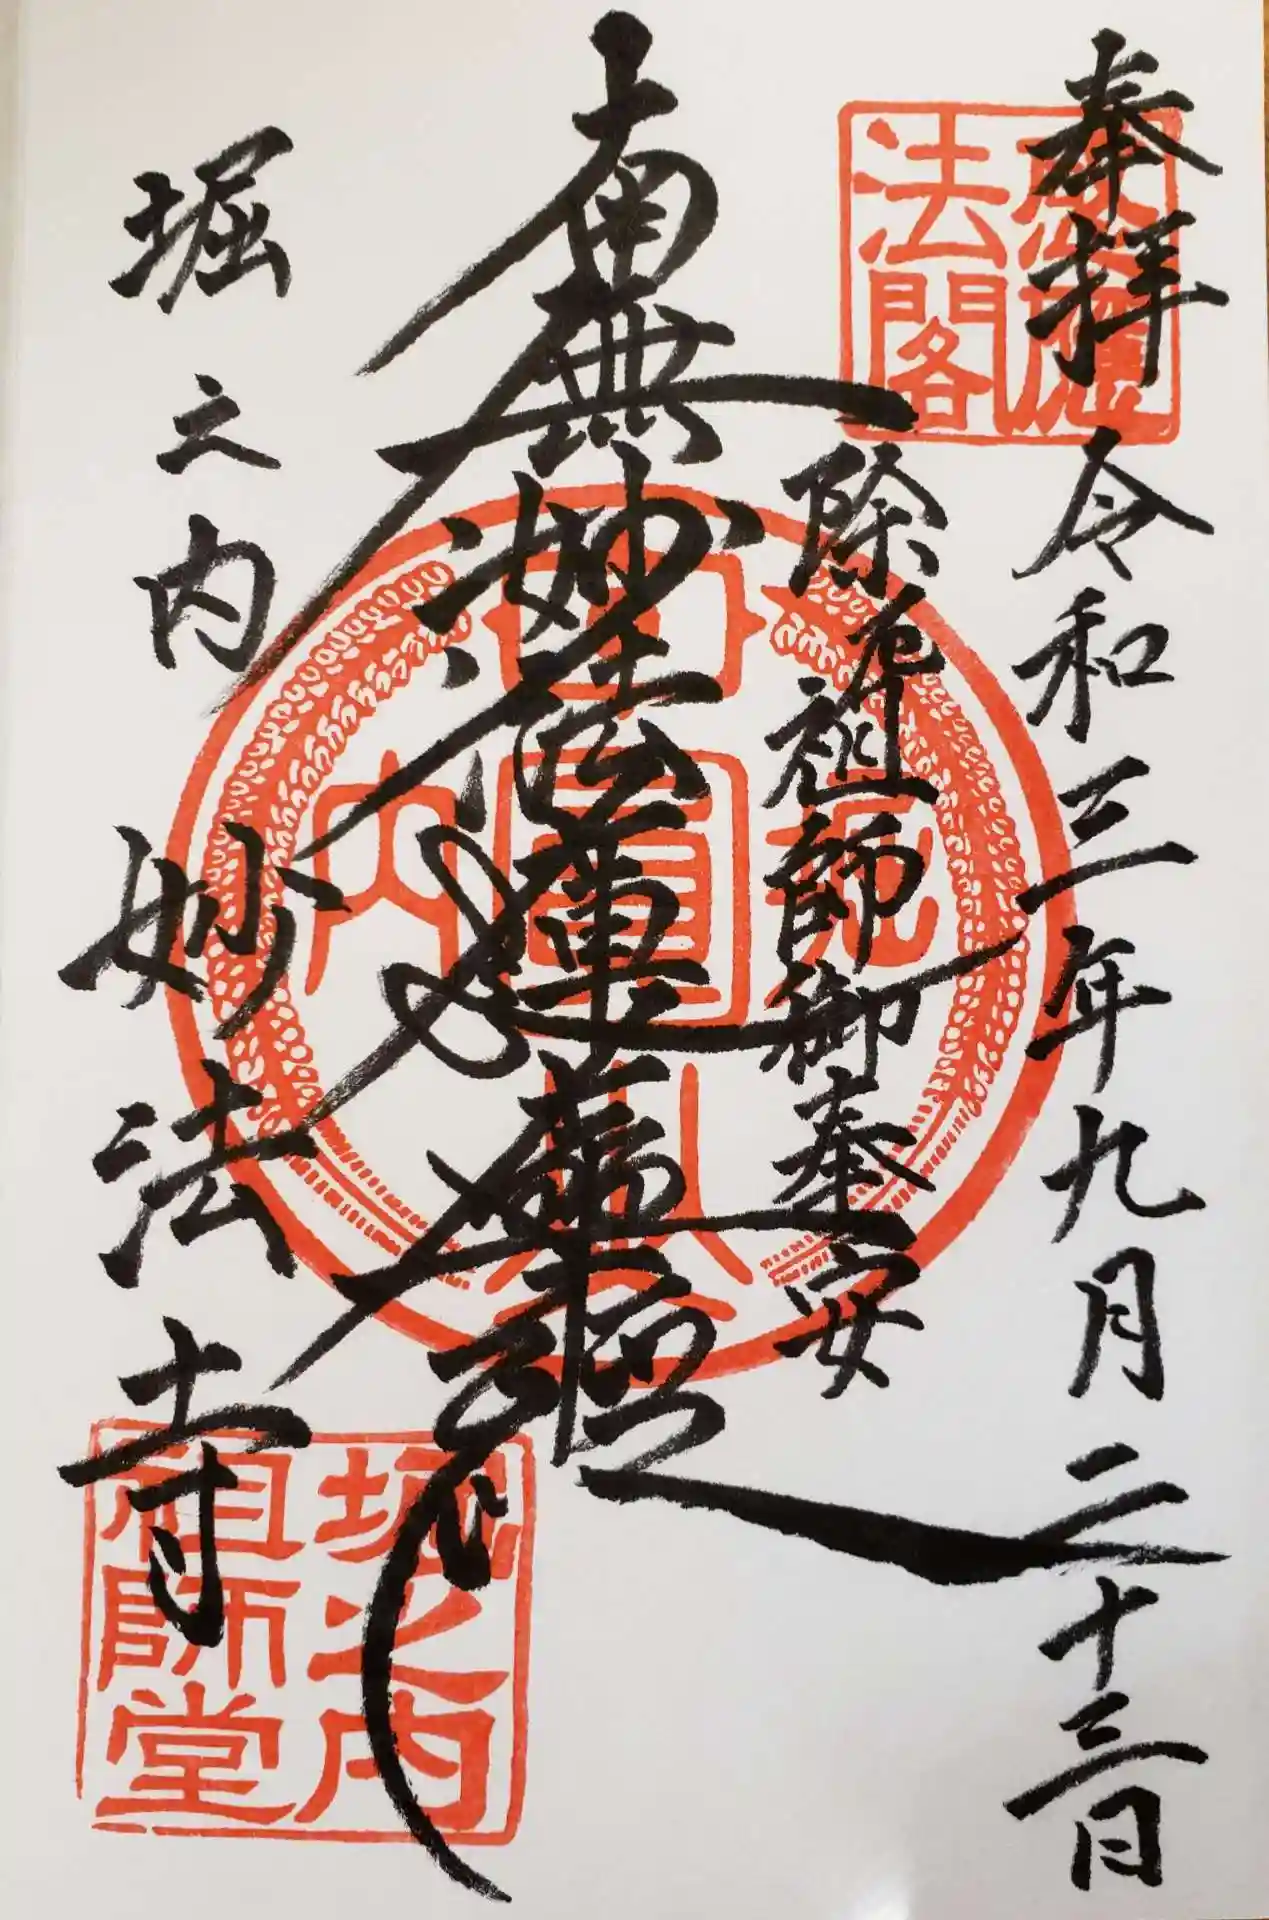 奉拝 令和三年九月二十三日
除厄祖師御奉安
南無妙法蓮華経
堀之内 妙法寺
感應法閣
堀之内祖師堂